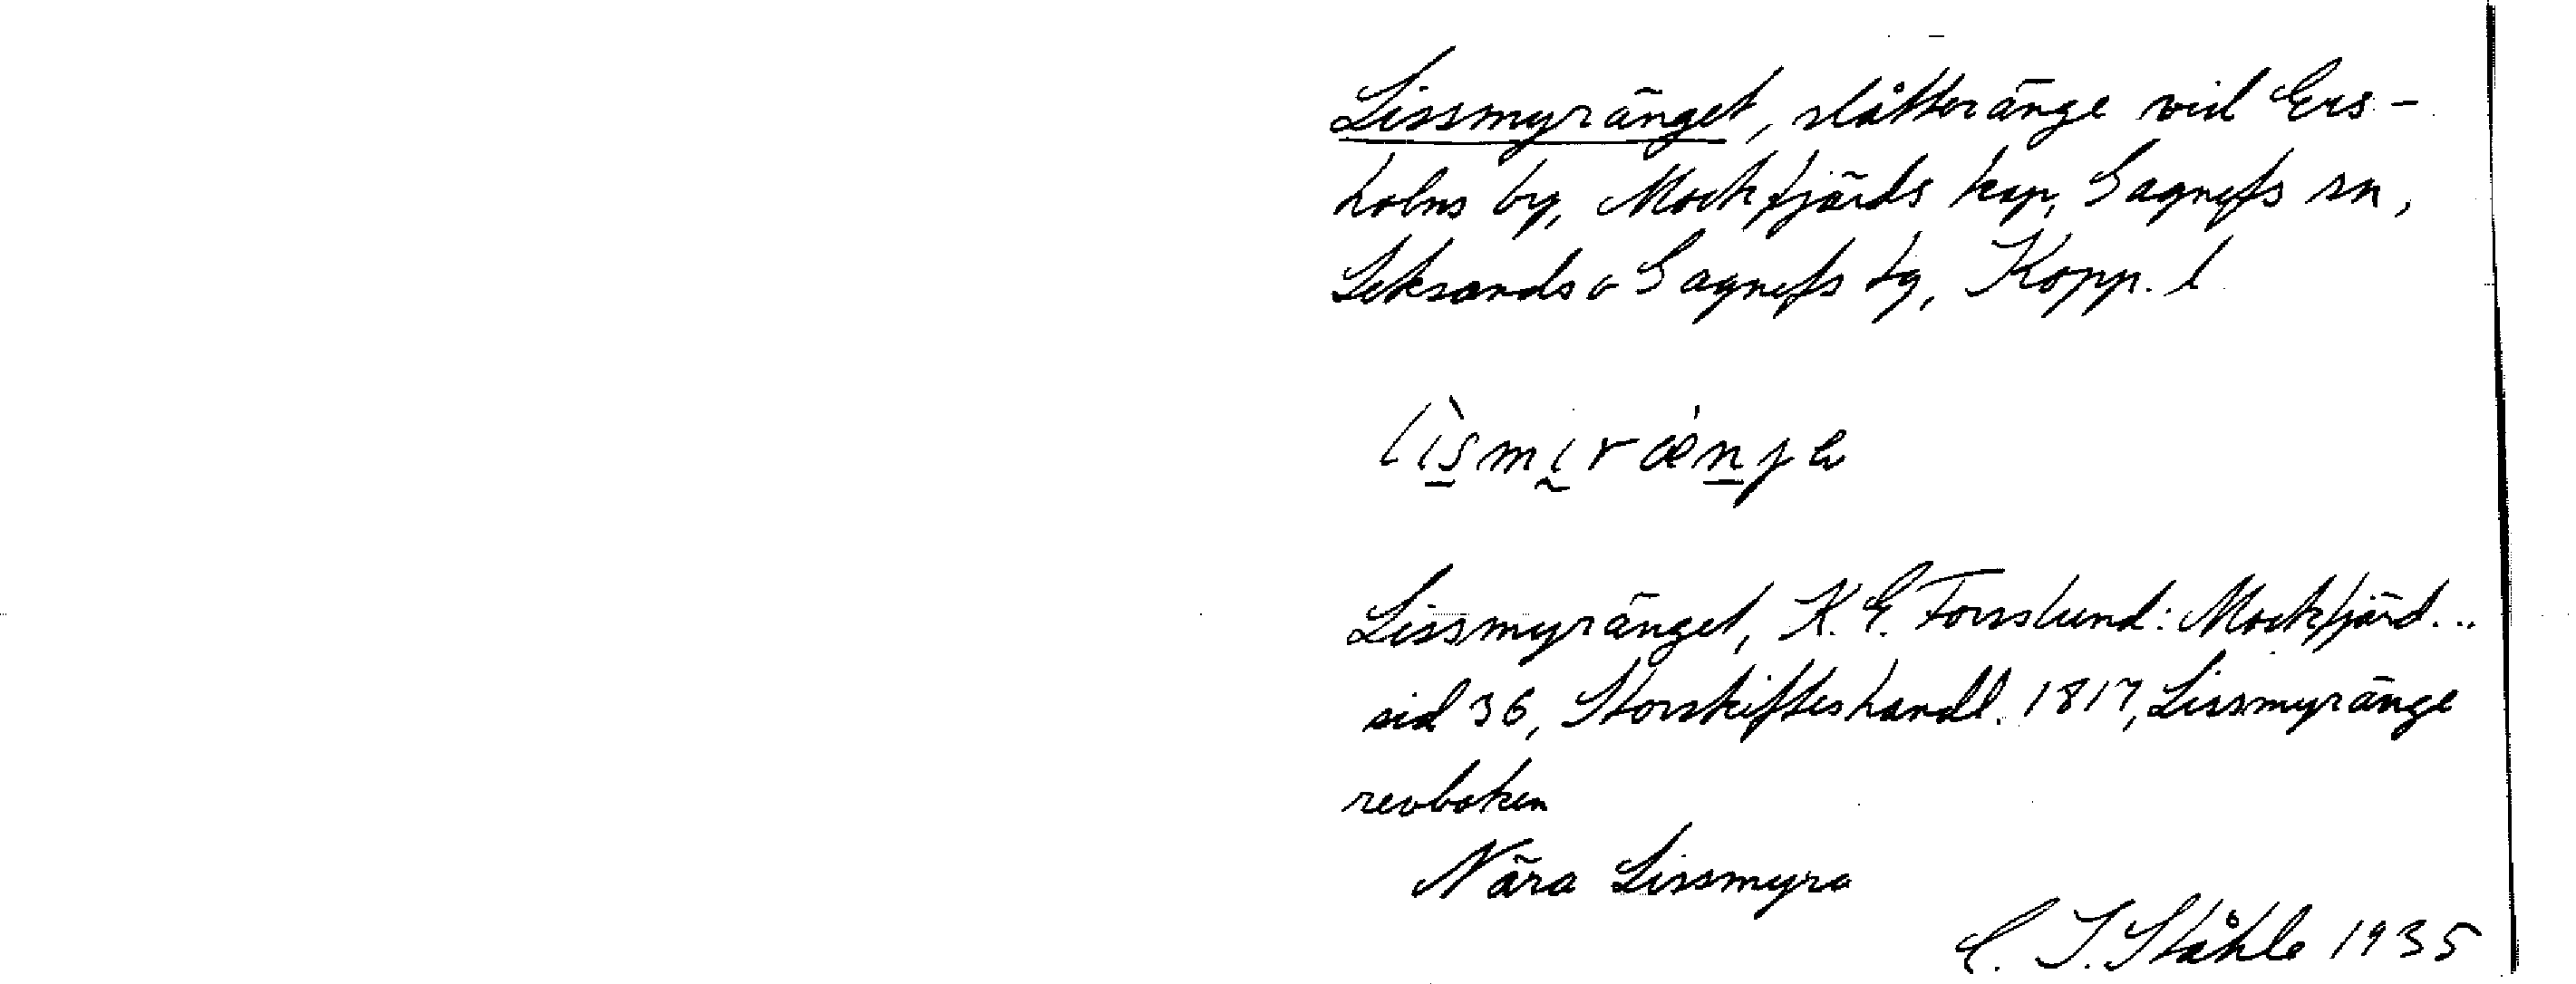 Lissmyränget, slåtteränge vid Ers-
holns by, Mockfjärds kap, Gagnefs sn,
Leksands o Gagnefs tg, Kopp. l
Lissmyränget, K. E. Forsslund: Mockfjärd...
sid 36, Storskifteshandl. 1817, Lissmyränge
revboken
Nära Lissmyra
C. I. Ståhle 1935